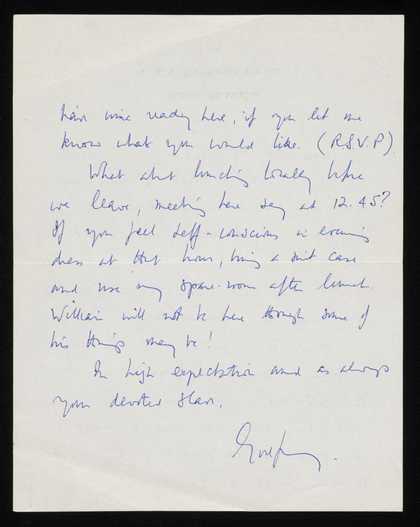 have wine ready here, if you let me
know what you would like. (R.S.V.P)
What about lunching locally before
we leave, meeting here say at 12.45?
If you feel self-conscious in evening
dress at that hour, bring a suit case
and use my spare-room after lunch.
William will not be here though some of
his things may be!
In high expectation and as always
your devoted slave.